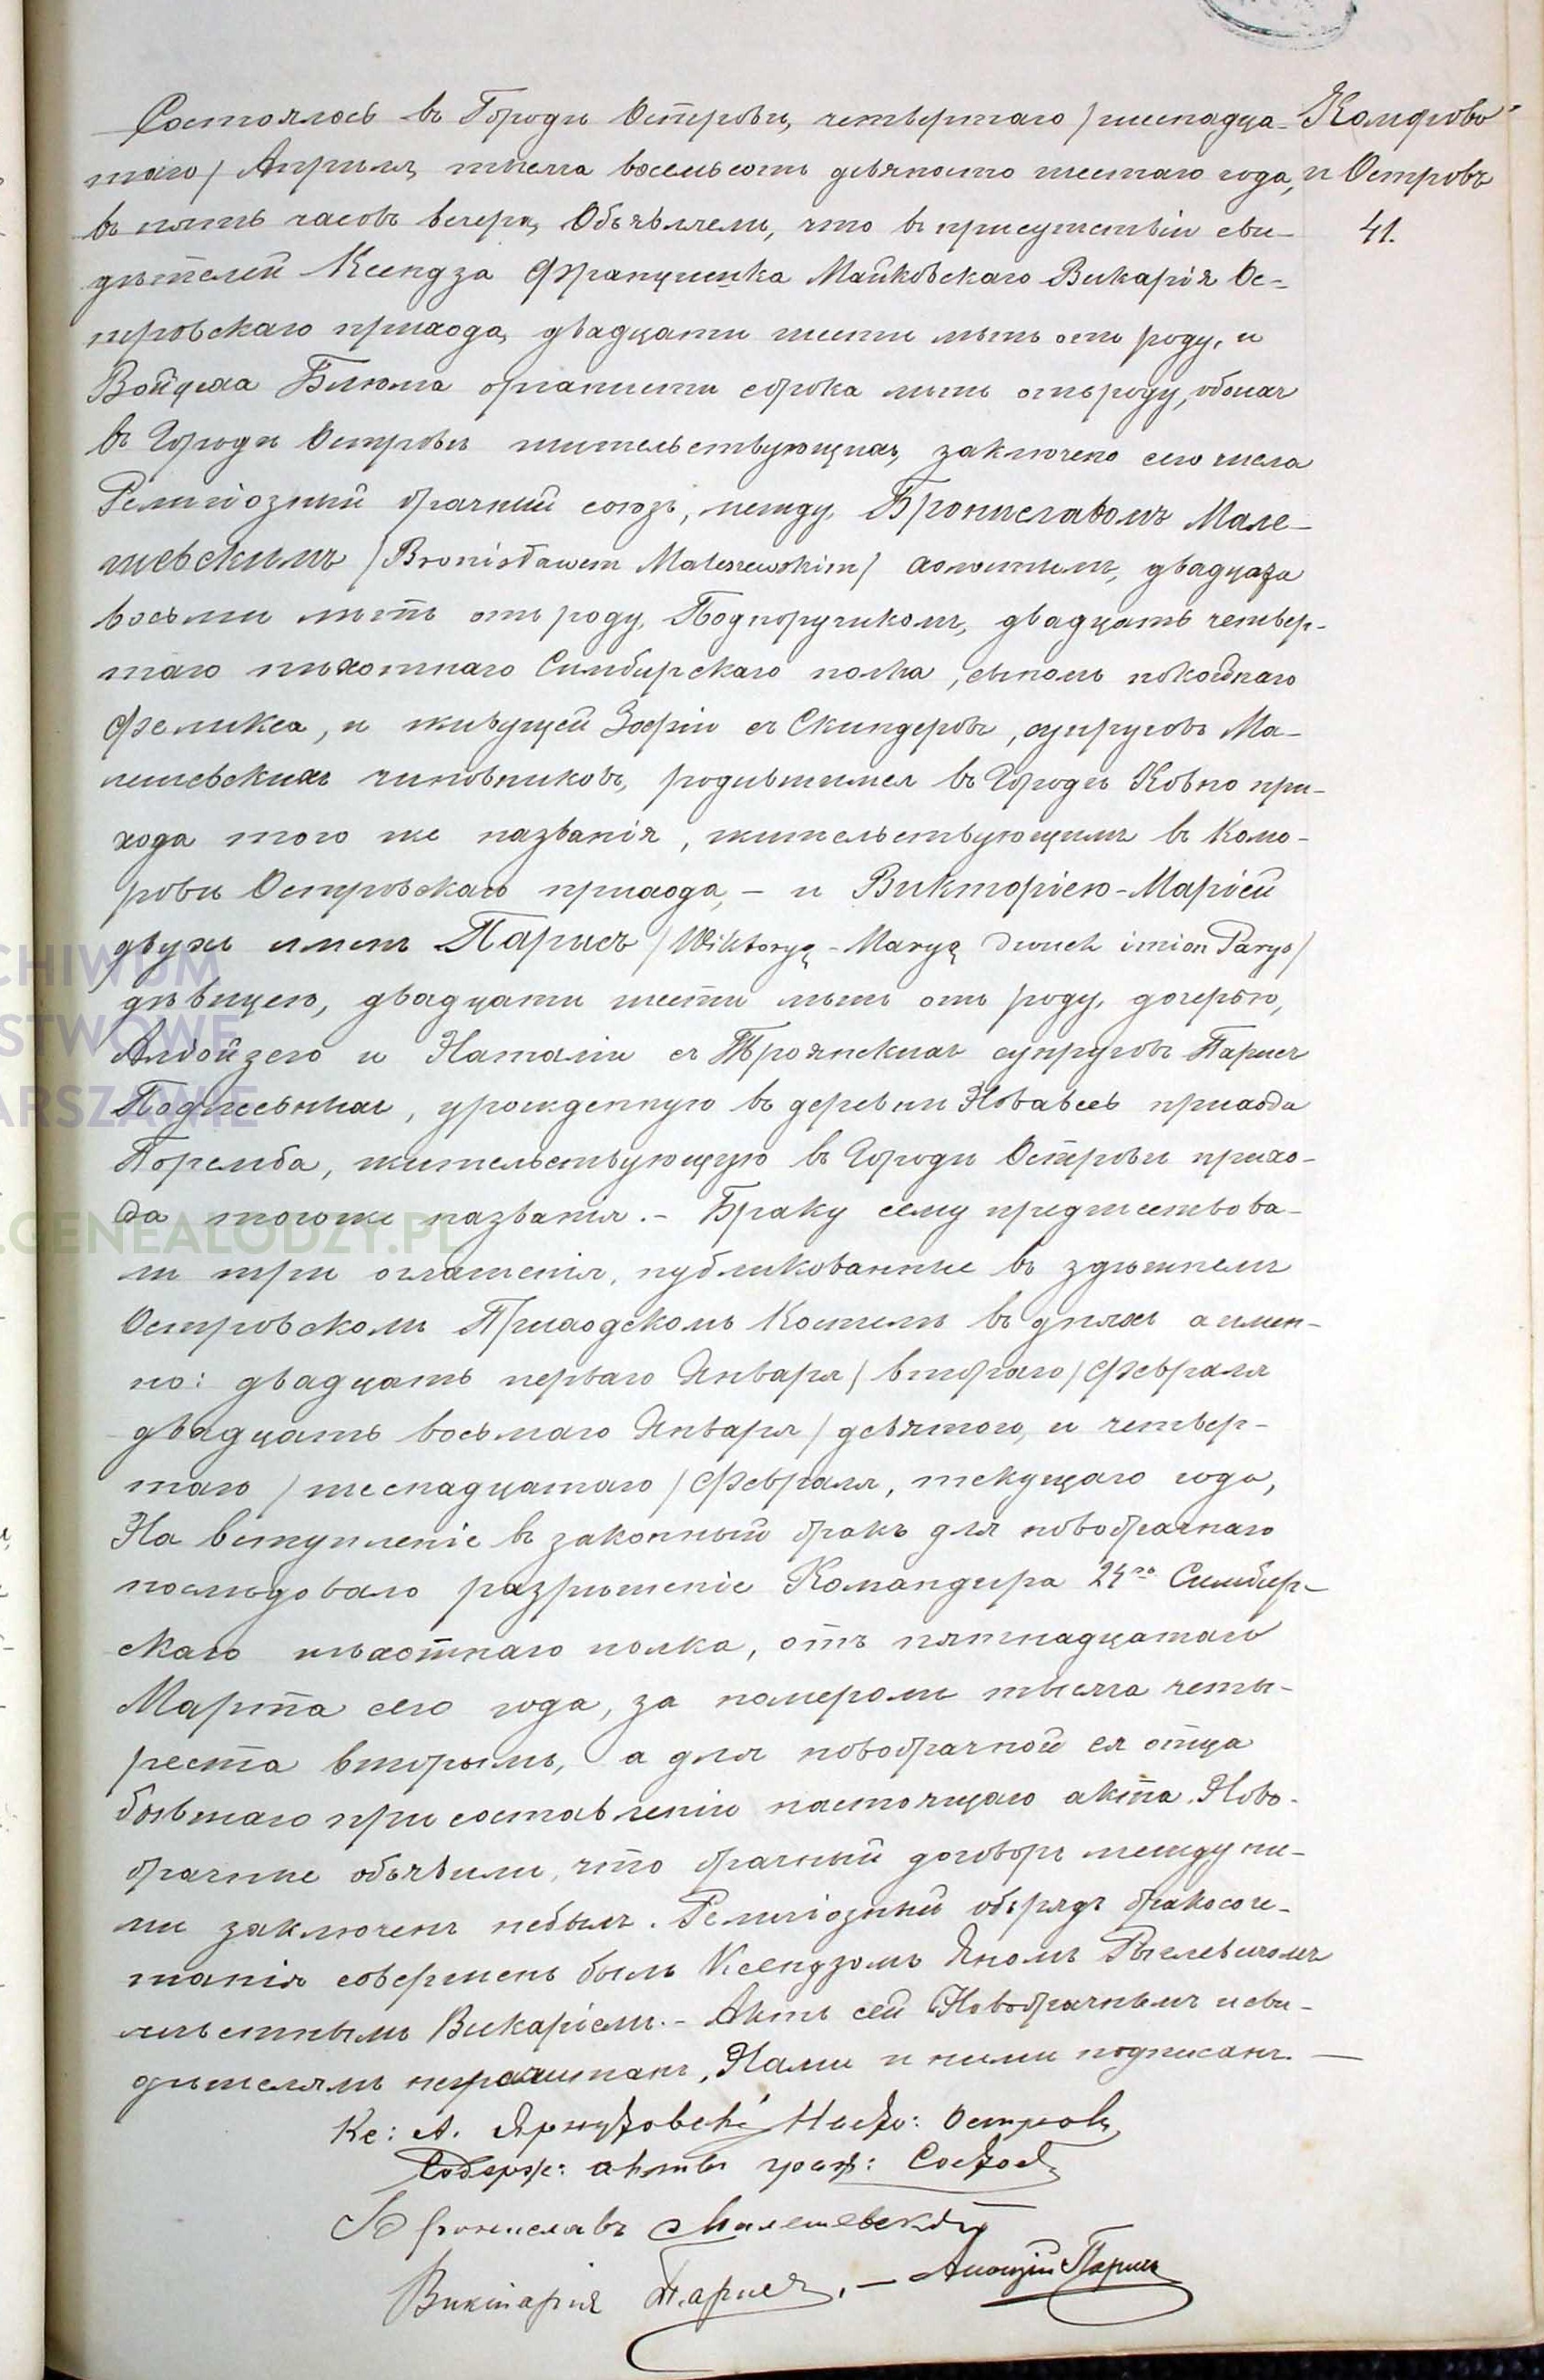 Состоялось въ Городѣ Островѣ, четвертаго /шеснадца-
таго/ Апрѣля, тысяча восемьсотъ девяносто шестаго года,
въ пять часовъ вечера, Объявляемъ, что въ присутствіи сви-
дѣтелей Ксендза Францишка Майковскаго Викарія Ос-
тровскаго прихода, двадцати шести лѣтъ отъ роду, и
Войцеха Блюма органисты сорока лѣтъ отъ роду, обоихъ
въ Городѣ Островѣ жительствующихъ, заключено сего числа
Религіозный брачный союзъ, между, Брониславомъ Мале-
шевскимъ /Bronisławem Maleszewskim/ холостымъ, двадцати
восьми лѣтъ отъ роду, Подпоручикомъ, двадцать четвер-
таго пѣхотнаго Симбирскаго полка, сыномъ покойнаго
Феликса, и живущей Зофіи съ Скиндеровъ, супруговъ Ма-
лешевскихъ чиновниковъ, родившимся въ Городѣ Ковно при-
хода того же названія, жительствующимъ въ Комо-
ровѣ Островскаго прихода, - и Викторіею-Маріей
двухъ именъ Парысъ /Wiktoryą-Maryą dwuch imion Parys/
дѣвицею, двадцати шести лѣтъ отъ роду, дочерью,
Алойзего и Наталіи съ Троянскихъ супруговъ Парысъ
, урожденную въ деревни Новавесь прихода
Поремба, жительствующую въ Городѣ Островѣ прихо-
да тогоже названія. - Браку сему предшествова-
ли три оглашенія, публикованные въ здѣшнемъ
Островскомъ Приходскомъ Костелѣ въ дняхъ а имен-
но: двадцать перваго Января /втораго/ Февраля
двадцать восьмаго Января /девятого, и четвер-
таго /шеснадцатаго/ Февраля, текущаго года,
На вступленіе въ законный бракъ для новобрачнаго
послѣдовало разрѣшеніе Командира 24го Симбир-
скаго пѣхотнаго полка, отъ пятнадцатаго
Марта сего года, за номеромъ тысяча четы-
реста вторымъ, а для новобрачной ея отца
бывшаго при составленіи настоящаго акта. Ново-
брачные объявили, что брачный договоръ между ни-
ми заключенъ небылъ. Религіозный обрядъ бракосоче-
танія совершенъ былъ Ксендзомъ Яномъ
мѣстнымъ Викаріемъ. - Актъ сей Новобрачнымъ и сви-
дѣтелямъ прочитанъ, Нами и ними подписанъ. —
Кс: А. Наст: Остров
Содерж: акты гражд: Сост
Брониславъ Малешевскій
Викторія Парысъ, - Алоизій Парысъ
Коморово
и Островъ
41.
CHIWUM
STWOWE
ARSZAWIE
.GENEALODZY.PL